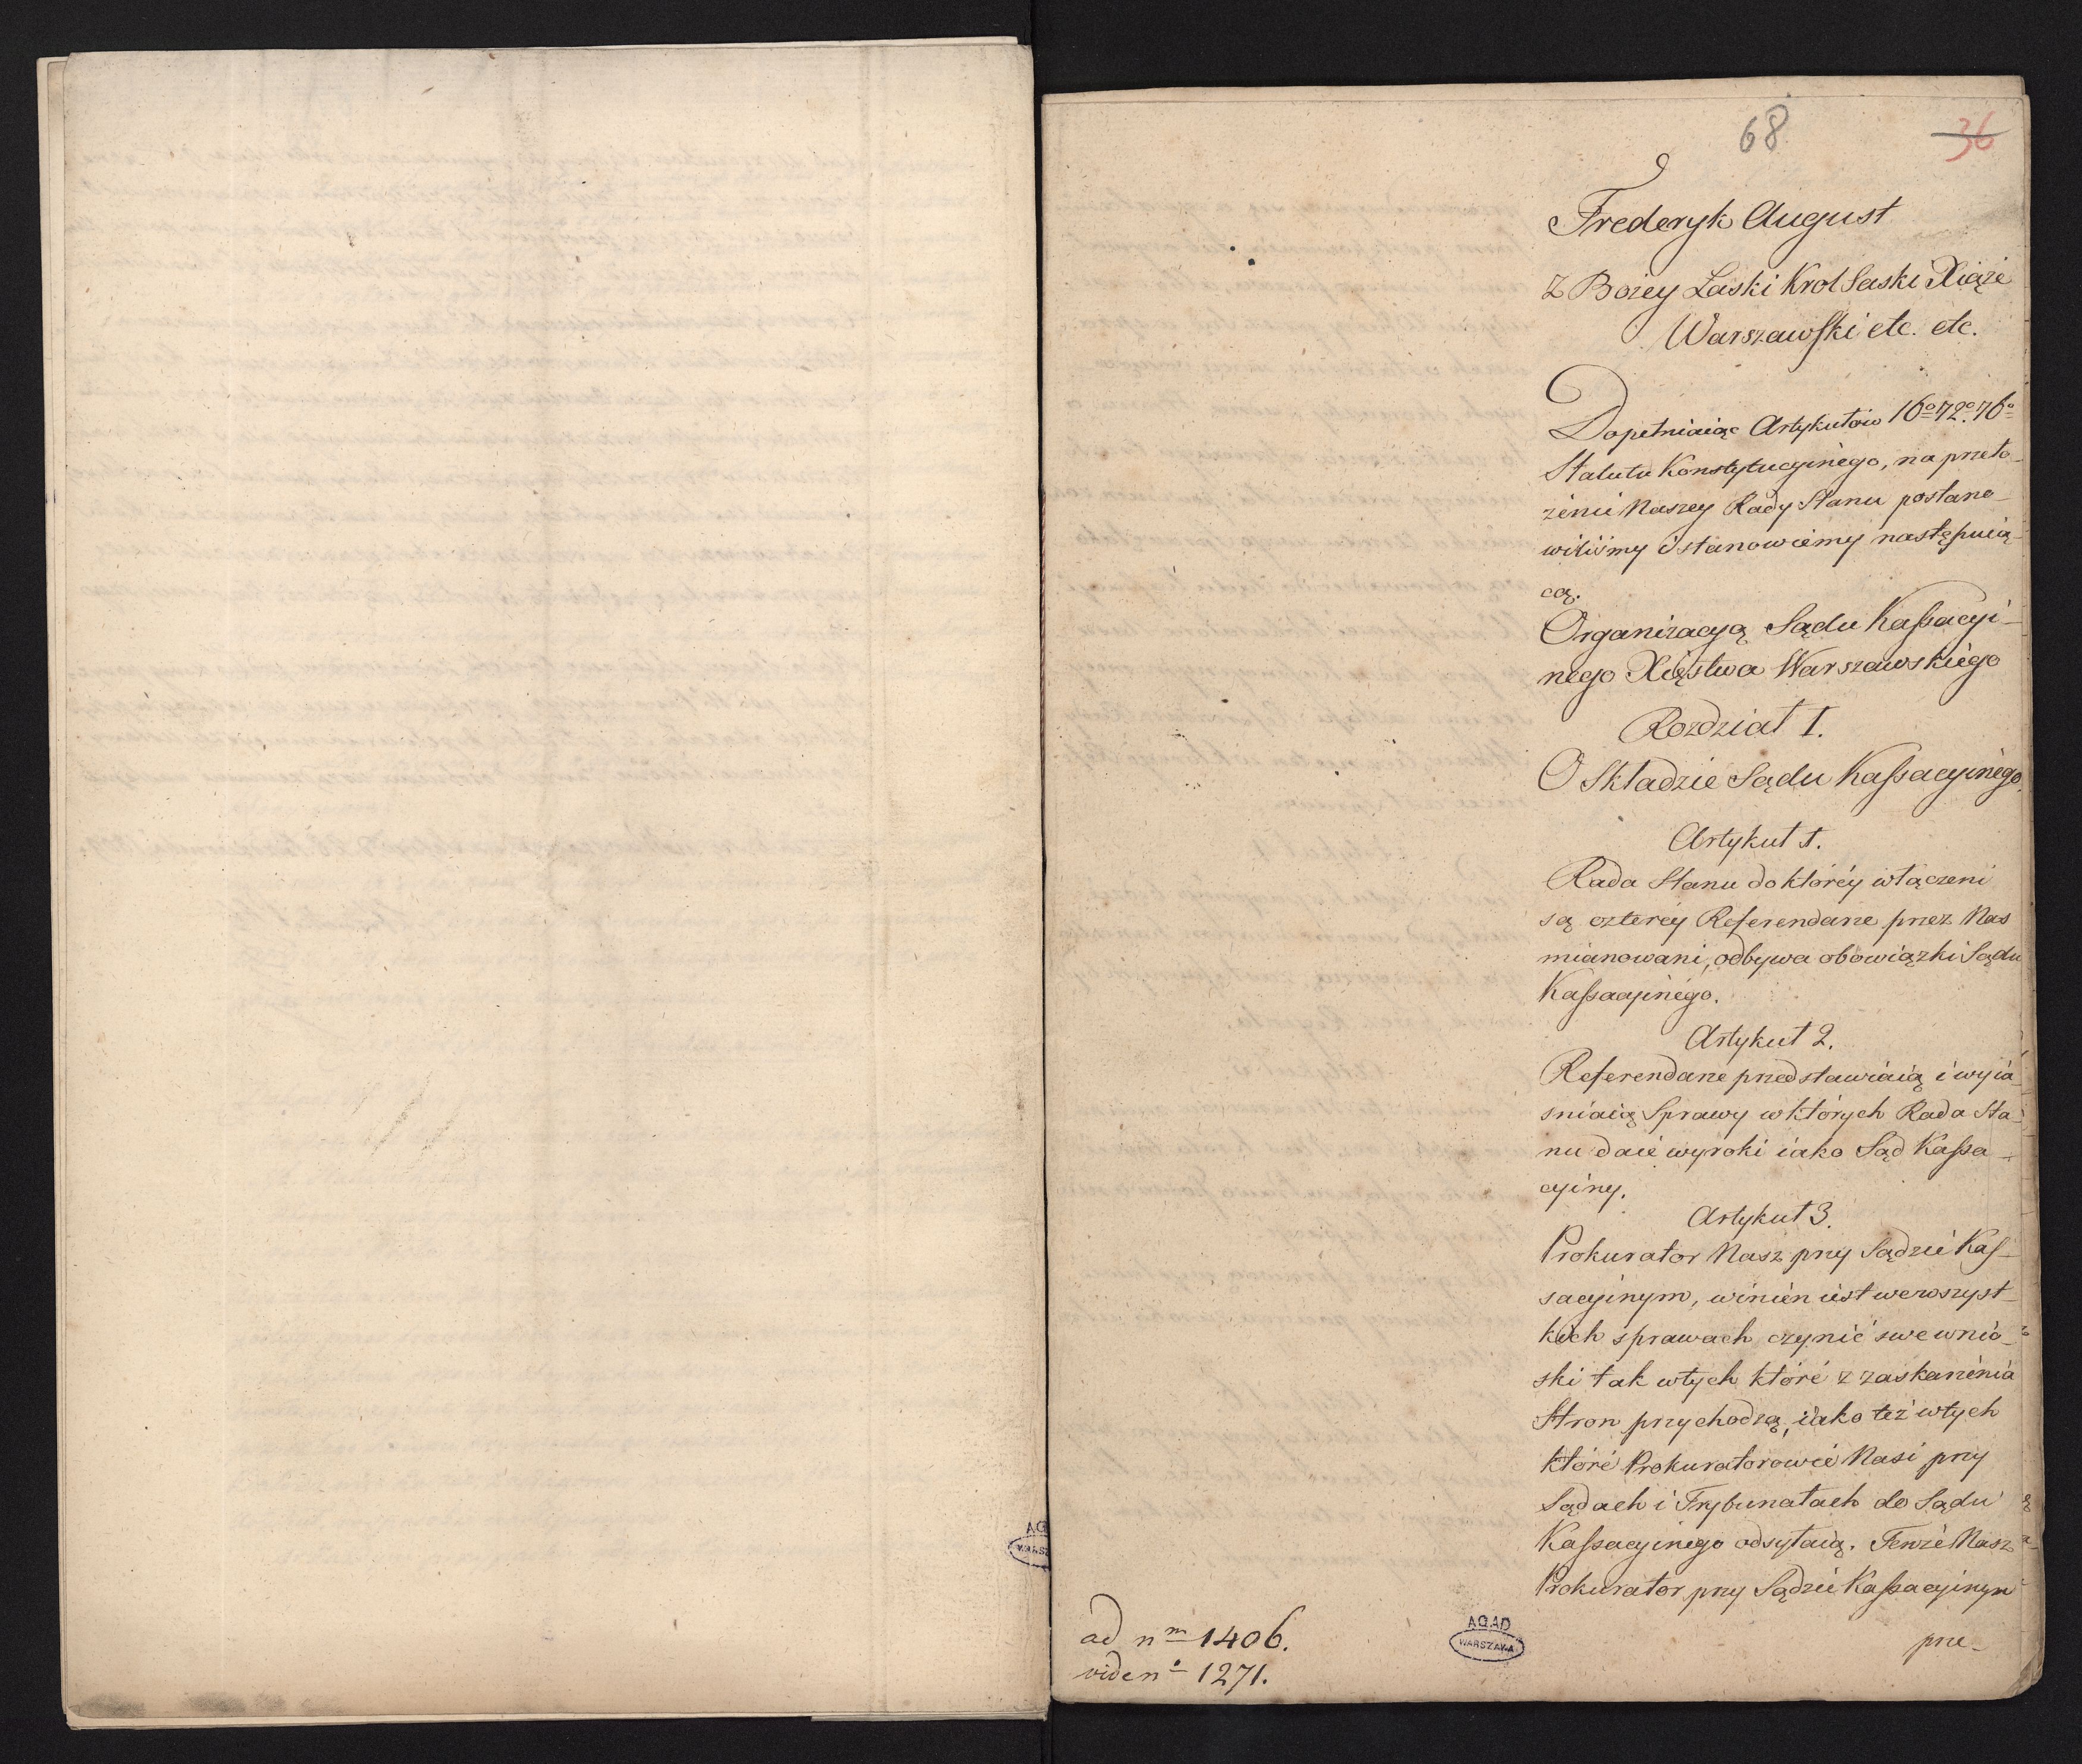 68
36
Frederyk August
Z Bożey Łaski Krol Saski Xiąże
Warszawski etc. etc.
Dopełniaiąc Artykułów 16º 72º 76º
Statutu Konstytucyinego, na przeło-
żenie Naszey Rady Stanu postano-
wiliśmy i stanowiemy następuią-
cą.
Organizacyą Sądu Kassacyi-
nego Xięstwa Warszawskiego
Rozdział I.
O Składzie Sądu Kassacyinego.
Artykuł 1.
Rada Stanu do któréy włączeni
są czteréy Referendarze przez Nas
mianowani, odbywa obowiązki Sądu
Kassacyinégo.
Artykuł 2.
Referendarze przedstawiaią i wyia-
sniaią Sprawy w których Rada Sta-
nu daie wyroki iako Sąd Kassa-
cyiny.
Artykuł 3.
Prokurator Nasz przy Sądzie Kas-
sacyinym, winien iest we wszyst-
kich sprawach czynić swe wnio-
ski tak w tych któré z zaskarżenia
Stron przychodzą, iako też w tych
któré Prokuratorowie Nasi przy
Sądach i Trybunałach do Sądu
Kassacyinego odsyłaią. Tenże Nasz
Prokurator przy Sądzie Kassacyinym
prze-
ad nm 1406.
vide nº 1271.
AGAD
WARSZAWA